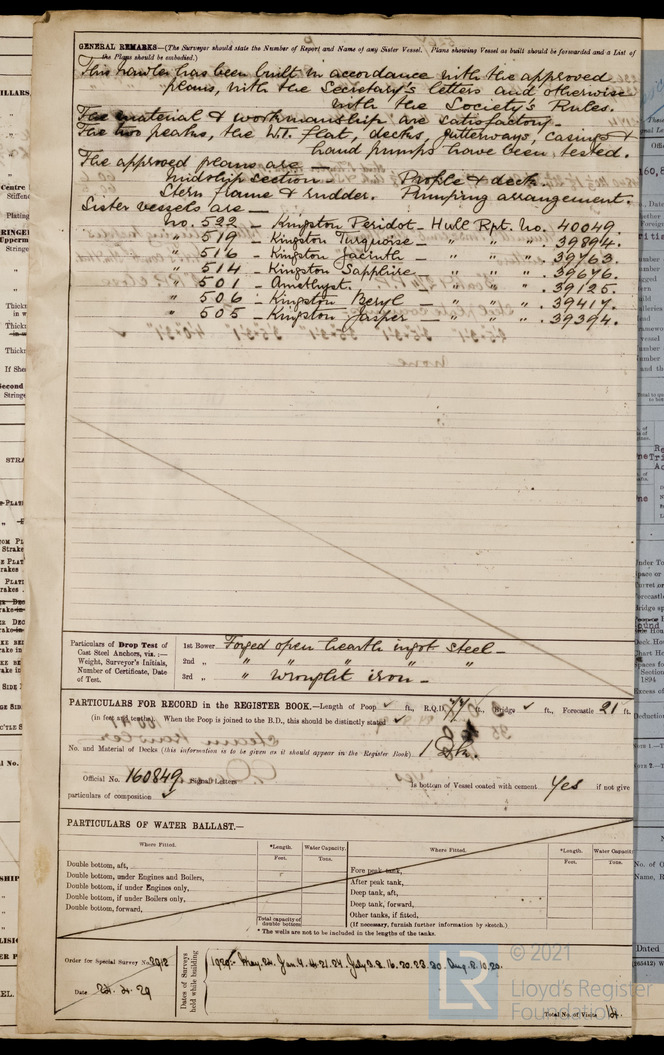 GENERAL REMARKS—(The Surveyor should state the Number of Report and Name of any Sister Vessel. Plans showing Vessel as built should be forwarded and a List of
the Plans should be embodied.)
This trawler has been built in accordance with the approved
plans, with the Secretary's letters and otherwise
with the Society's Rules.
The material & workmanship are satisfactory —
The two peaks, the W.T. flat, decks, gutterways, casings &
hand pumps have been tested.
The approved plans are —
Midship section — Profile & deck.
Stern frame & rudder. Pumping arrangement.
Sister vessels are —
No. 522 – Kingston Peridot – Hull Rpt. No. 40049.
" 519 – Kingston Turquoise – " " " . 39894.
" 516 – Kingston Jacinth – " " " . 39763.
" 514 – Kingston Sapphire – " " " . 39676.
" 501 – Amethyst. – " " " . 39125.
" 506 – Kingston Beryl – " " " . 39417.
" 505 – Kingston Jasper – " " " . 39394.
Particulars of Drop Test of
Cast Steel Anchors, viz. :—
Weight, Surveyor's Initials,
Number of Certificate, Date
of Test.
1st Bower Forged open hearth ingot steel —
2nd " " " " "
3rd " " wrought iron —
PARTICULARS FOR RECORD in the REGISTER BOOK.—Length of Poop ✓ ft., R.Q.D. ft., Bridge ✓ ft., Forecastle 21 ft.
(in feet and tenths). When the Poop is joined to the B.D., this should be distinctly stated ✓
No. and Material of Decks (this information is to be given as it should appear in the Register Book) 1 Dk.
Official No. 160849 Signal Letters Is bottom of Vessel coated with cement Yes if not give
particulars of composition ✓
PARTICULARS OF WATER BALLAST.—
Where Fitted. *Length. Water Capacity. Where Fitted. *Length. Water Capacity
Feet. Tons. Feet. Tons.
Double bottom, aft, Fore peak tank,
Double bottom, under Engines and Boilers, After peak tank,
Double bottom, if under Engines only, Deep tank, aft,
Double bottom, if under Boilers only, Deep tank, forward,
Double bottom, forward, Other tanks, if fitted,
Total capacity of double bottom (If necessary, furnish further information by sketch.)
* The wells are not to be included in the lengths of the tanks.
Order for Special Survey No. 2912
Date 24.4.29
Dates of Surveys held while building
1929:- May. 24. Jun. 4. 21. 24. July 3. 8. 16. 20. 23. 30. Aug. 8. 10. 20.
Total No. of Visits 14
© 2021
Lloyd's Register
Foundation
LR